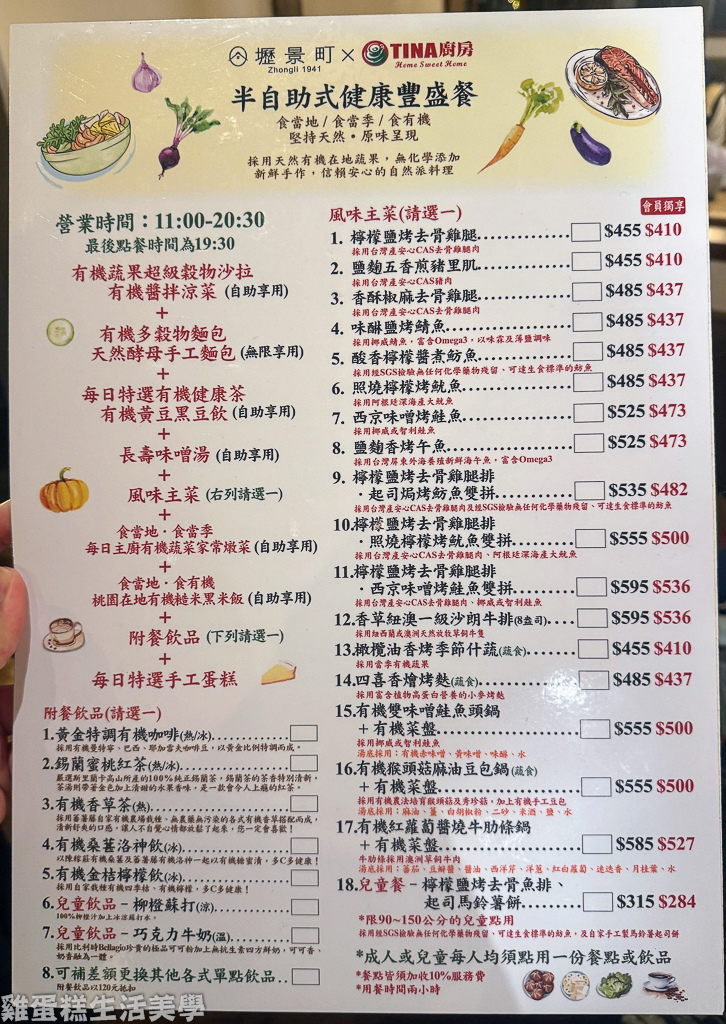 壢景町 × TINA廚房
Zhongli 1941 Home Sweet Home
半自助式健康豐盛餐
食當地/食當季/食有機
堅持天然•原味呈現
採用天然有機在地蔬果，無化學添加
新鮮手作，信賴安心的自然派料理
營業時間：11:00-20:30
最後點餐時間為19:30
有機蔬果超級穀物沙拉
有機醬拌涼菜 (自助享用)
+
有機多穀物麵包
天然酵母手工麵包 (無限享用)
+
每日特選有機健康茶
有機黃豆黑豆飲 (自助享用)
+
長壽味噌湯 (自助享用)
+
風味主菜 (右列請選一)
+
食當地·食當季
每日主廚有機蔬菜家常燉菜 (自助享用)
+
食當地·食有機
桃園在地有機糙米黑米飯 (自助享用)
+
附餐飲品 (下列請選一)
+
每日特選手工蛋糕
附餐飲品(請選一)
1.黃金特調有機咖啡(熱/冰)
採用有機曼特寧、巴西、耶加雪夫咖啡豆，以黃金比例特調而成。
2.錫蘭蜜桃紅茶(熱/冰)
嚴選斯里蘭卡高山所產的100%純正錫蘭茶，錫蘭茶的茶香特別清新，
茶湯則帶著金色加上清甜的水果香味，是一款會令人上癮的紅茶。
3.有機香草茶(熱)
採用蕃薯藤自家有機農場栽種，無農藥無污染的各式有機香草搭配而成，
清新舒爽的口感，讓人不自覺心情都放鬆了起來，您一定會喜歡！
4.有機桑葚洛神飲(冰)
以陳稼莊有機桑葚及蕃薯藤有機洛神一起以有機糖蜜漬，多C多健康！
5.有機金桔檸檬飲(冰)
採用自家栽種有機四季桔、有機檸檬，多C多健康！
6.兒童飲品 - 柳橙蘇打(涼)
100%柳橙汁加上冰涼蘇打水。
7.兒童飲品 - 巧克力牛奶(溫)
採用比利時Bellagio珍貴的極品可可粉加上無抗生素四方鮮奶，可可香、
奶香融為一體。
8.可補差額更換其他各式單點飲品
附餐飲品以120元抵扣
風味主菜(請選一)
會員獨享
1. 檸檬鹽烤去骨雞腿 $455 $410
採用台灣產安心CAS去骨雞腿肉
2. 鹽麴五香煎豬里肌 $455 $410
採用台灣產安心CAS豬肉
3. 香酥椒麻去骨雞腿 $485 $437
採用台灣產安心CAS去骨雞腿肉
4. 味醂鹽烤鯖魚 $485 $437
採用挪威鯖魚，富含Omega3，以味霖及薄鹽調味
5. 酸香檸檬醬煮魴魚 $485 $437
採用經SGS檢驗無任何化學藥物殘留、可達生食標準的魴魚
6. 照燒檸檬烤魷魚 $485 $437
採用阿根廷深海產大魷魚
7. 西京味噌烤鮭魚 $525 $473
採用挪威或智利鮭魚
8. 鹽麴香烤午魚 $525 $473
採用台灣屏東外海養殖新鮮海午魚，富含Omega3
9. 檸檬鹽烤去骨雞腿排
·起司焗烤魴魚雙拼 $535 $482
採用台灣產安心CAS去骨雞腿肉及經SGS檢驗無任何化學藥物殘留、可達生食標準的魴魚
10.檸檬鹽烤去骨雞腿排
·照燒檸檬烤魷魚雙拼 $555 $500
採用台灣產安心CAS去骨雞腿肉、阿根廷深海產大魷魚
11.檸檬鹽烤去骨雞腿排
·西京味噌烤鮭魚雙拼 $595 $536
採用台灣產安心CAS去骨雞腿肉、挪威或智利鮭魚
12.香草紐澳一級沙朗牛排(8盎司) $595 $536
採用紐西蘭或澳洲天然放牧草飼牛隻
13.橄欖油香烤季節什蔬(蔬食) $455 $410
採用當季有機蔬果
14.四喜香燴烤麩(蔬食) $485 $437
採用富含植物高蛋白營養的小麥烤麩
15.有機雙味噌鮭魚頭鍋
+有機菜盤 $555 $500
採用挪威或智利鮭魚
湯底採用：有機赤味噌、黃味噌、味醂、水
16.有機猴頭菇麻油豆包鍋(蔬食)
+有機菜盤 $555 $500
採用有機農法培育猴頭菇及秀珍菇，加上有機手工豆包
湯底採用：麻油、薑、白胡椒粉、二砂、米酒、鹽、水
17.有機紅蘿蔔醬燒牛肋條鍋
+有機菜盤 $585 $527
牛肋條採用澳洲草飼牛肉
湯底採用：蕃茄、豆瓣醬、醬油、西洋芹、洋蔥、紅白蘿蔔、迷迭香、月桂葉、水
18.兒童餐 - 檸檬鹽烤去骨魚排、
起司馬鈴薯餅 $315 $284
*限90~150公分的兒童點用
採用經SGS檢驗無任何化學藥物殘留、可達生食標準的魴魚，及自家手工製馬鈴薯起司餅
*成人或兒童每人均須點用一份餐點或飲品
*餐點皆須加收10%服務費
*用餐時間兩小時
雞蛋糕生活美學